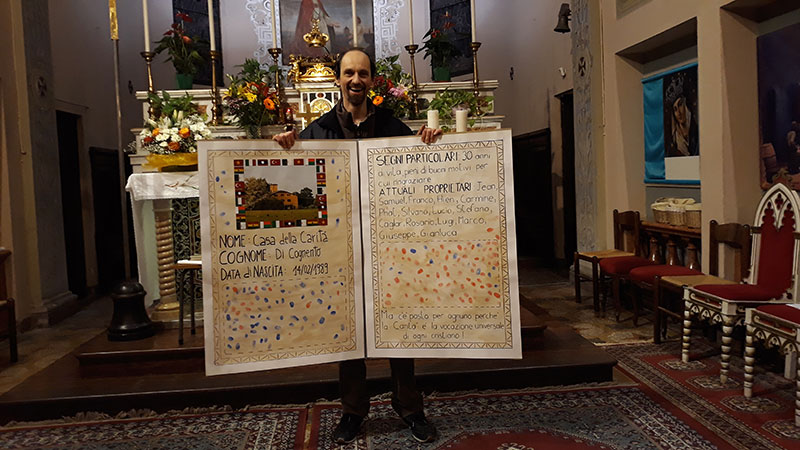 NOME: Casa della Carità
COGNOME: Di Cognento
DATA di NASCITA: 14/02/1989
SEGNI PARTICOLARI 30 anni
di vita pieni di buoni motivi per
cui ringraziare
ATTUALI PROPRIETARI Jean,
Samuel, Franco, Allen, Carmine,
Phol, Silvana, Lucio, Stefano,
Caglar, Rosario, Luigi, Marco,
Giuseppe, Gianluca.
Ma c'è posto per ognuno perchè
la Carità è la vocazione universale
di ogni cristiano!